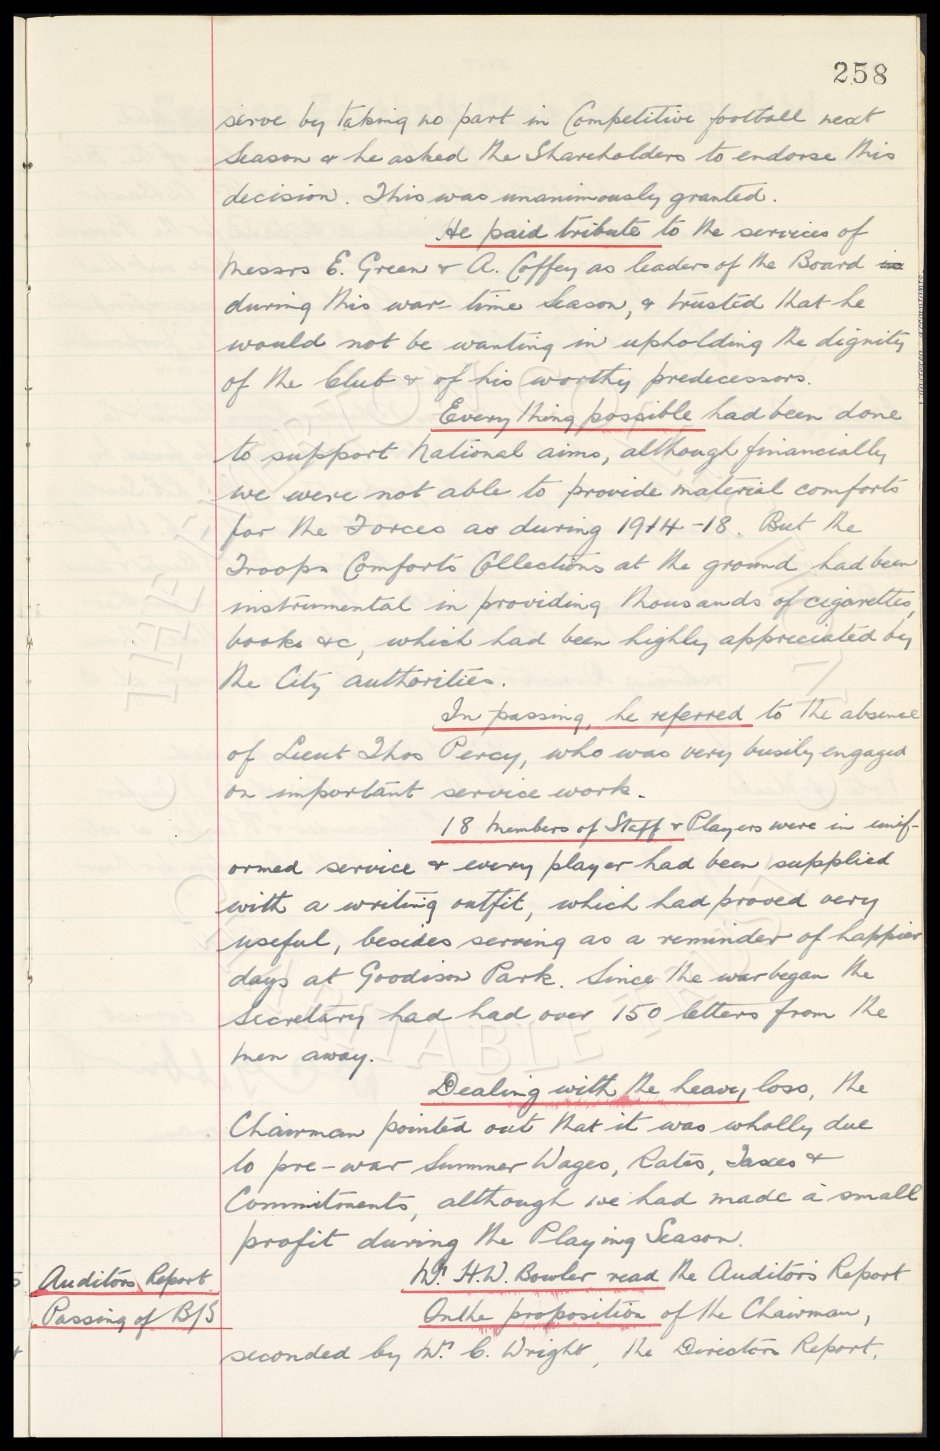 258
serve by taking no part in Competitive football next
Season & he asked the Shareholders to endorse this
decision. This was unanimously granted.
He paid tribute to the services of
Messrs E. Green & A. Coffey as leaders of the Board in
during this war-time Season, & trusted that he
would not be wanting in upholding the dignity
of the Club & of his worthy predecessors.
Everything possible had been done
to support National aims, although financially
we were not able to provide material comforts
for the Forces as during 1914-18. But the
Troops Comforts Collections at the ground had been
instrumental in providing thousands of cigarettes,
books &c, which had been highly appreciated by
the City authorities.
In passing, he referred to the absence
of Lieut Thos Percy, who was very busily engaged
on important service work.
18 Members of Staff & Players were in unif-
ormed service & every player had been supplied
with a writing outfit, which had proved very
useful, besides serving as a reminder of happier
days at Goodison Park. Since the war began the
Secretary had had over 150 letters from the
men away.
Dealing with the heavy loss, the
Chairman pointed out that it was wholly due
to pre-war Summer Wages, Rates, Taxes &
Commitments, although we had made a small
profit during the Playing Season.
Auditors Report Mr. H.W. Bowler read the Auditors Report
Passing of B/S On the proposition of the Chairman,
seconded by Mr. C. Wright, the Directors Report,
THE EVERTON COLLECTION CHARITABLE TRUST